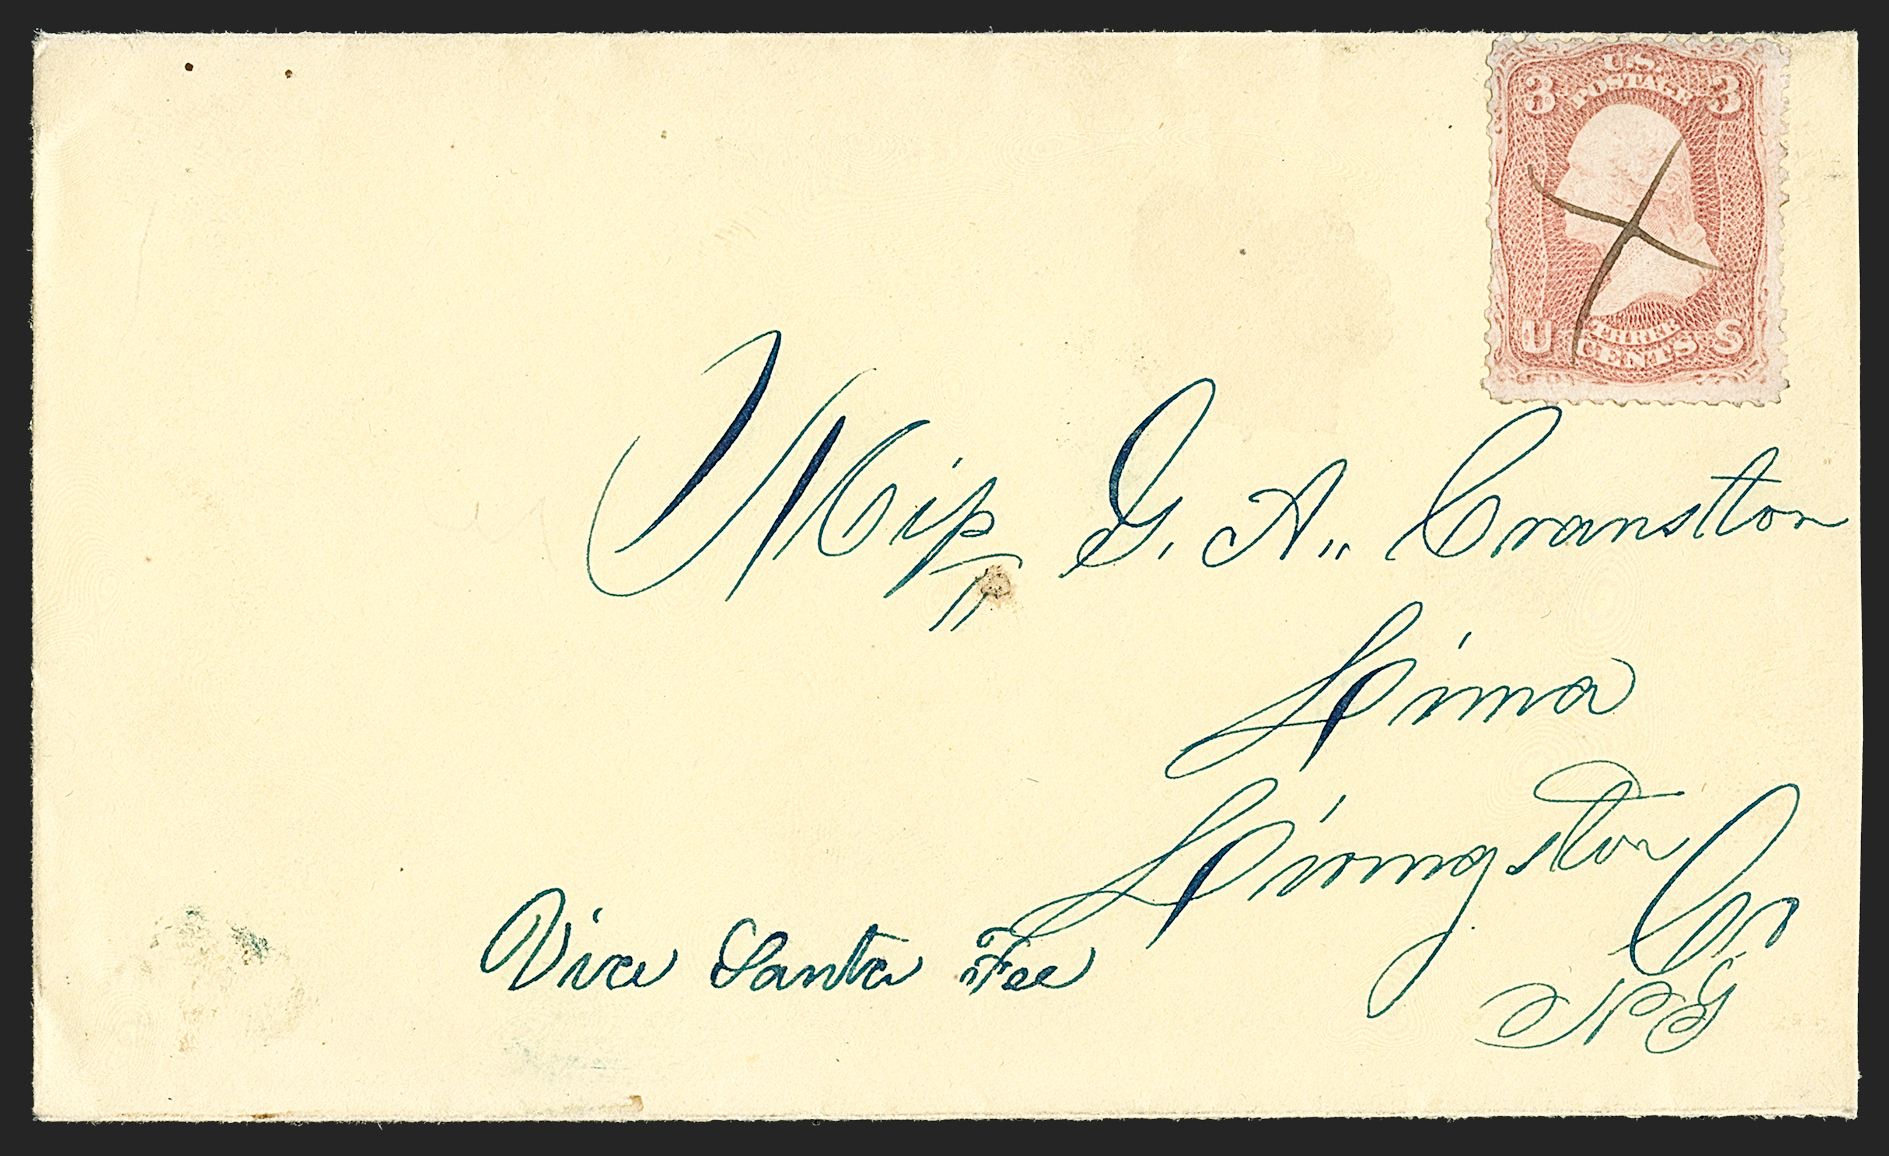 U.S. POSTAGE
3 3
U S
THREE
CENTS
Miss G. A. Cranston
Lima
Livingston Co
N.Y.
Viea Santa Fee